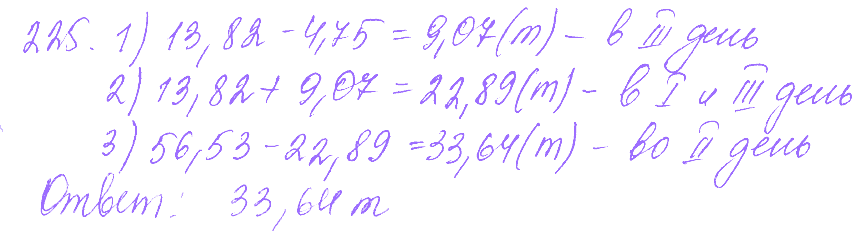 225. 1) 13,82 - 4,75 = 9,07 (т) - в III день
2) 13,82 + 9,07 = 22,89 (т) - в I и III день
3) 56,53 - 22,89 = 33,64 (т) - во II день
Ответ: 33,64 т